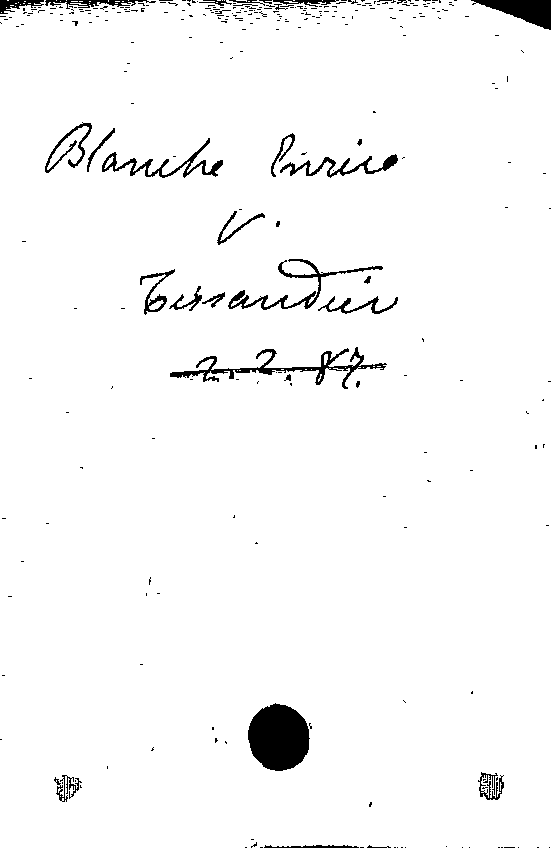 Blanche Enrico
v.
Tissandier
2. 2. 87.